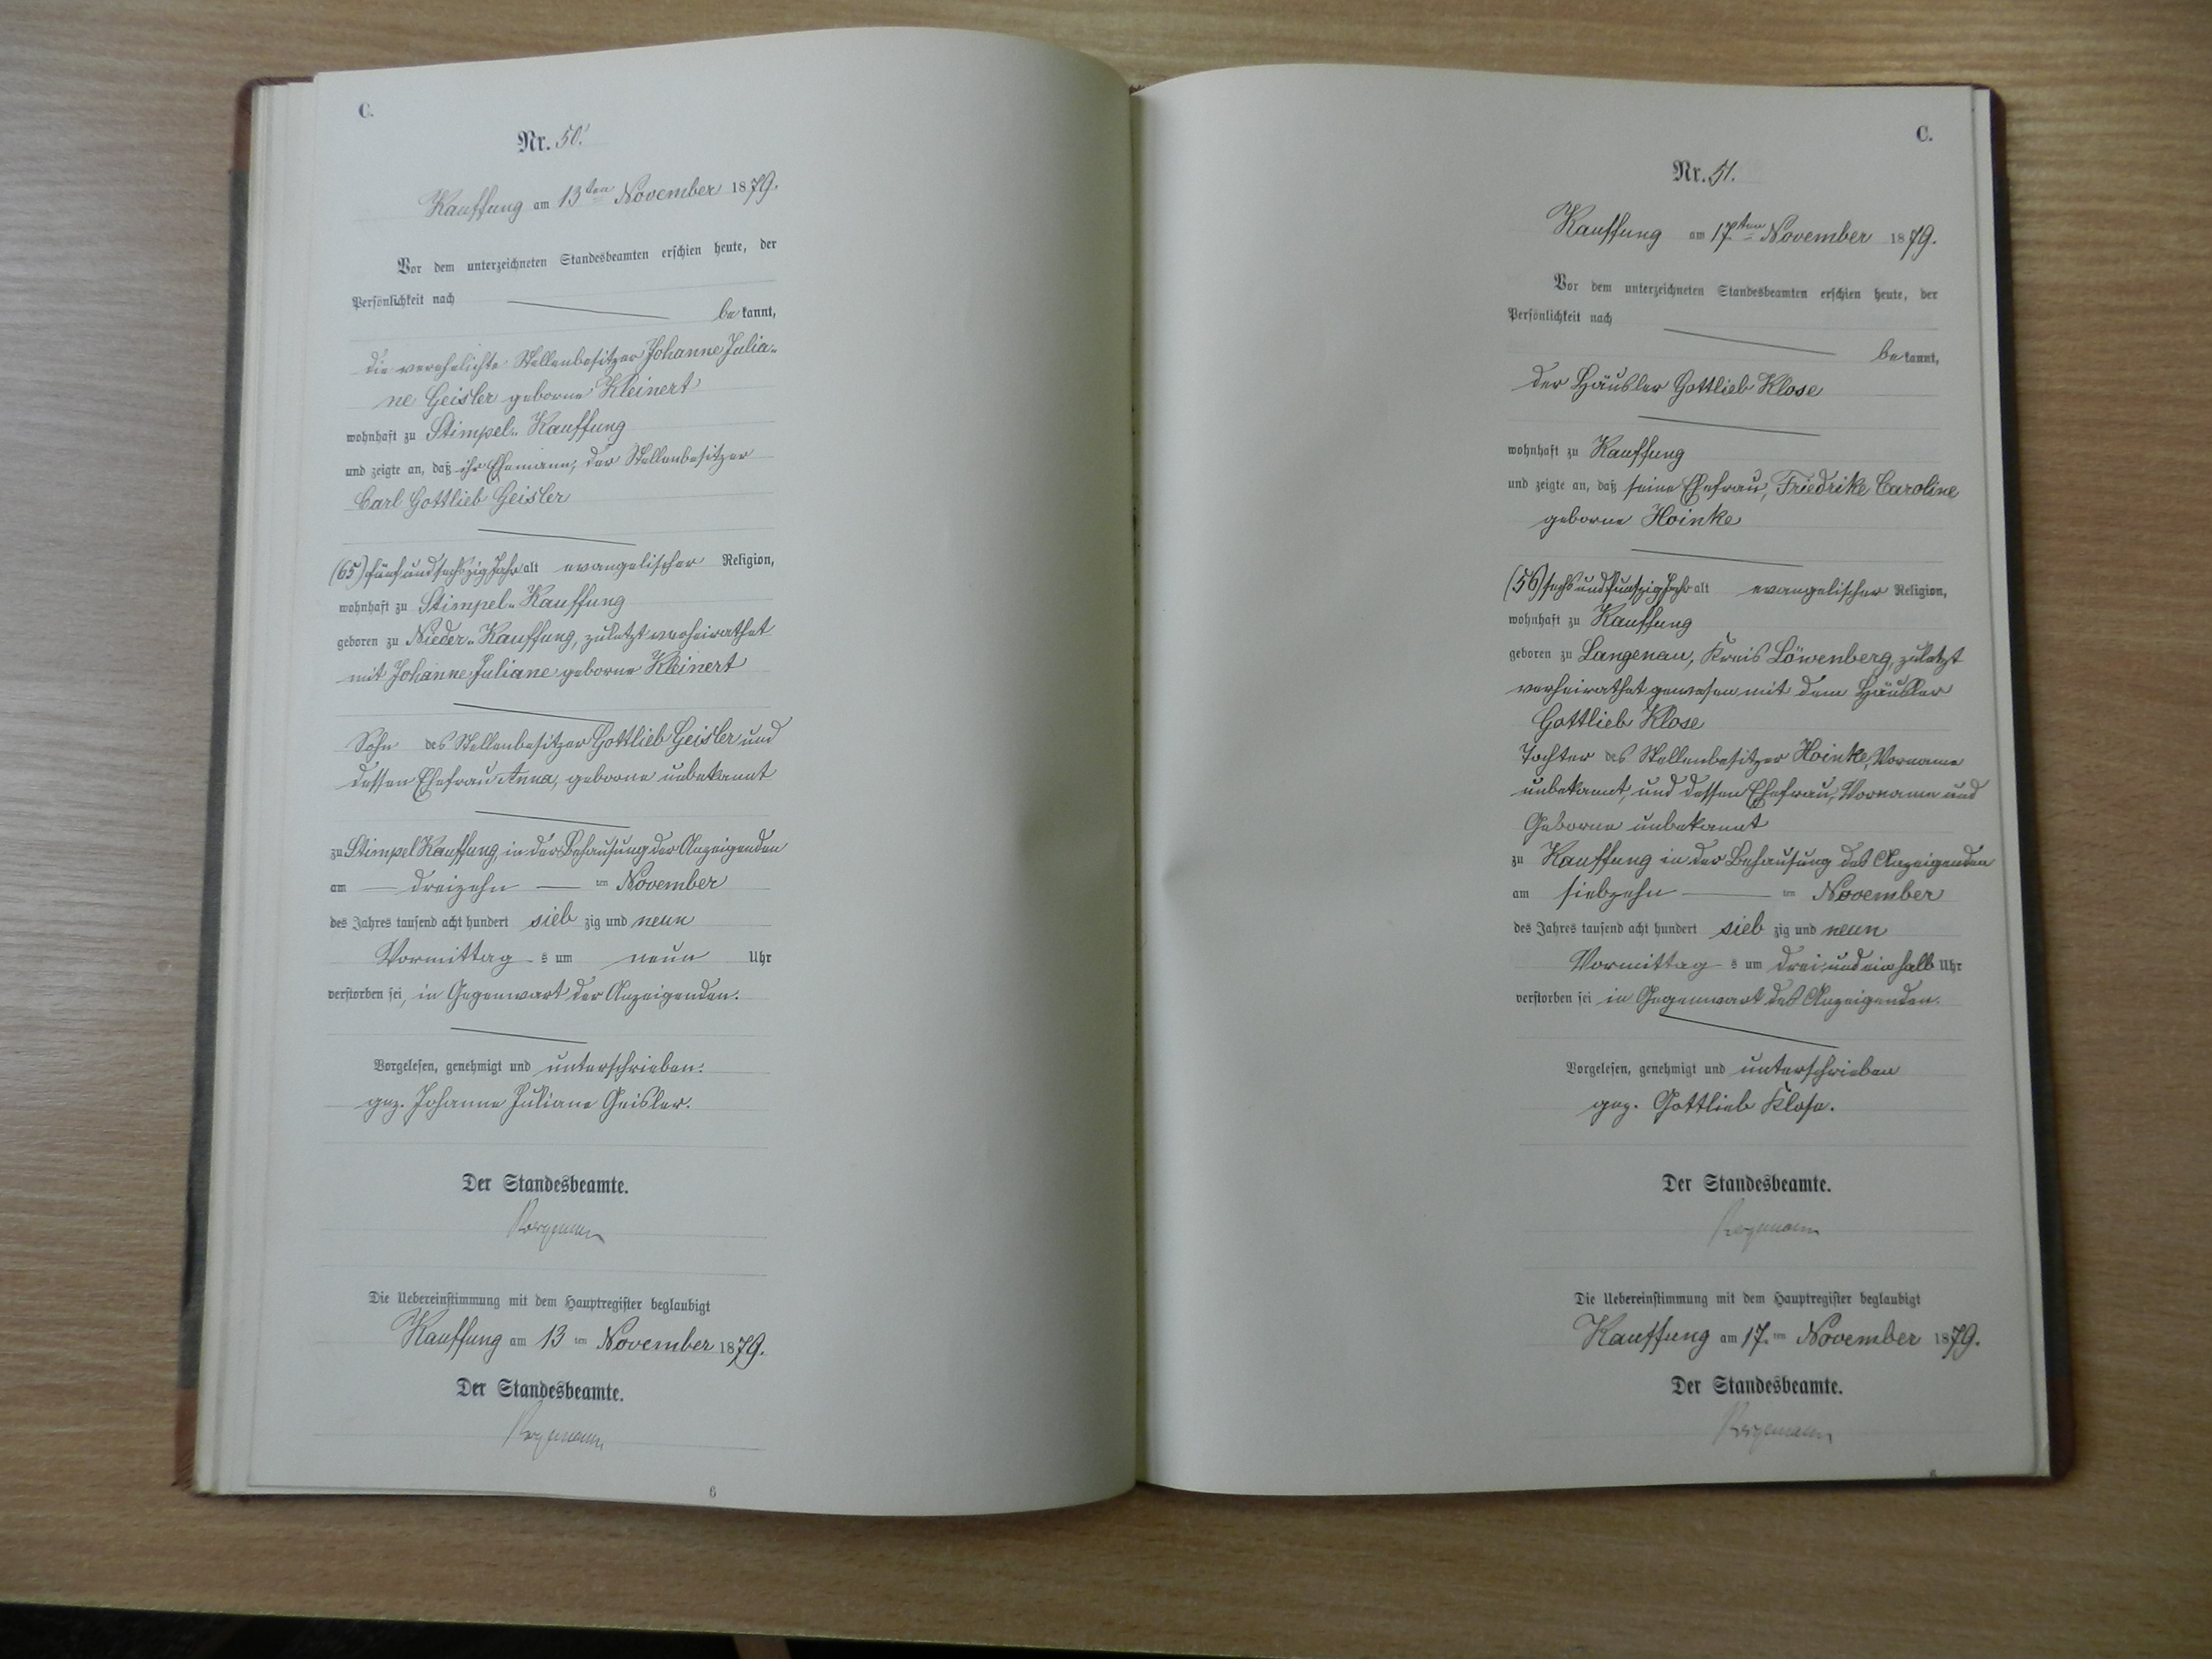 C.
Nr. 50.
Kauffung am 13ten November 1879.
Vor dem unterzeichneten Standesbeamten erschien heute, der
Persönlichkeit nach
bekannt,
die verehelichte Stellenbesitzer Johanne Julia-
ne Geisler geborne Kleinert
wohnhaft zu Stimpel-Kauffung
und zeigte an, daß ihr Ehemann, der Stellenbesitzer
Carl Gottlieb Geisler
(65) fünfundsechszig Jahr alt evangelischer Religion,
wohnhaft zu Stimpel-Kauffung
geboren zu Nieder-Kauffung, zuletzt verheirathet
mit Johanne Juliane geborne Kleinert
Sohn des Stellenbesitzer Gottlieb Geisler und
dessen Ehefrau Anna, geborne unbekannt
zu Stimpel Kauffung in der Behausung der Anzeigenden
am dreizehn ten November
des Jahres tausend acht hundert siebzig und neun
Vormittags um neun Uhr
verstorben sei, in Gegenwart der Anzeigenden.
Vorgelesen, genehmigt und unterschrieben.
gez. Johanne Juliane Geisler.
Der Standesbeamte.
Die Uebereinstimmung mit dem Hauptregister beglaubigt
Kauffung am 13 ten November 1879.
Der Standesbeamte.
6
C.
Nr. 51.
Kauffung am 17ten November 1879.
Vor dem unterzeichneten Standesbeamten erschien heute, der
Persönlichkeit nach
bekannt,
der Häusler Gottlieb Klose
wohnhaft zu Kauffung
und zeigte an, daß seine Ehefrau, Friedrike Caroline
geborne Hoinke
(56) sechsundfunfzig Jahr alt evangelischer Religion,
wohnhaft zu Kauffung
geboren zu Langenau, Kreis Löwenberg, zuletzt
verheirathet gewesen mit dem Häusler
Gottlieb Klose
Tochter des Stellenbesitzer Hoinke, Vorname
unbekannt, und dessen Ehefrau, Vorname und
Geborne unbekannt
zu Kauffung in der Behausung des Anzeigenden
am siebzehn ten November
des Jahres tausend acht hundert siebzig und neun
Vormittags um drei und ein halb Uhr
verstorben sei in Gegenwart des Anzeigenden.
Vorgelesen, genehmigt und unterschrieben
gez. Gottlieb Klose.
Der Standesbeamte.
Die Uebereinstimmung mit dem Hauptregister beglaubigt
Kauffung am 17. ten November 1879.
Der Standesbeamte.